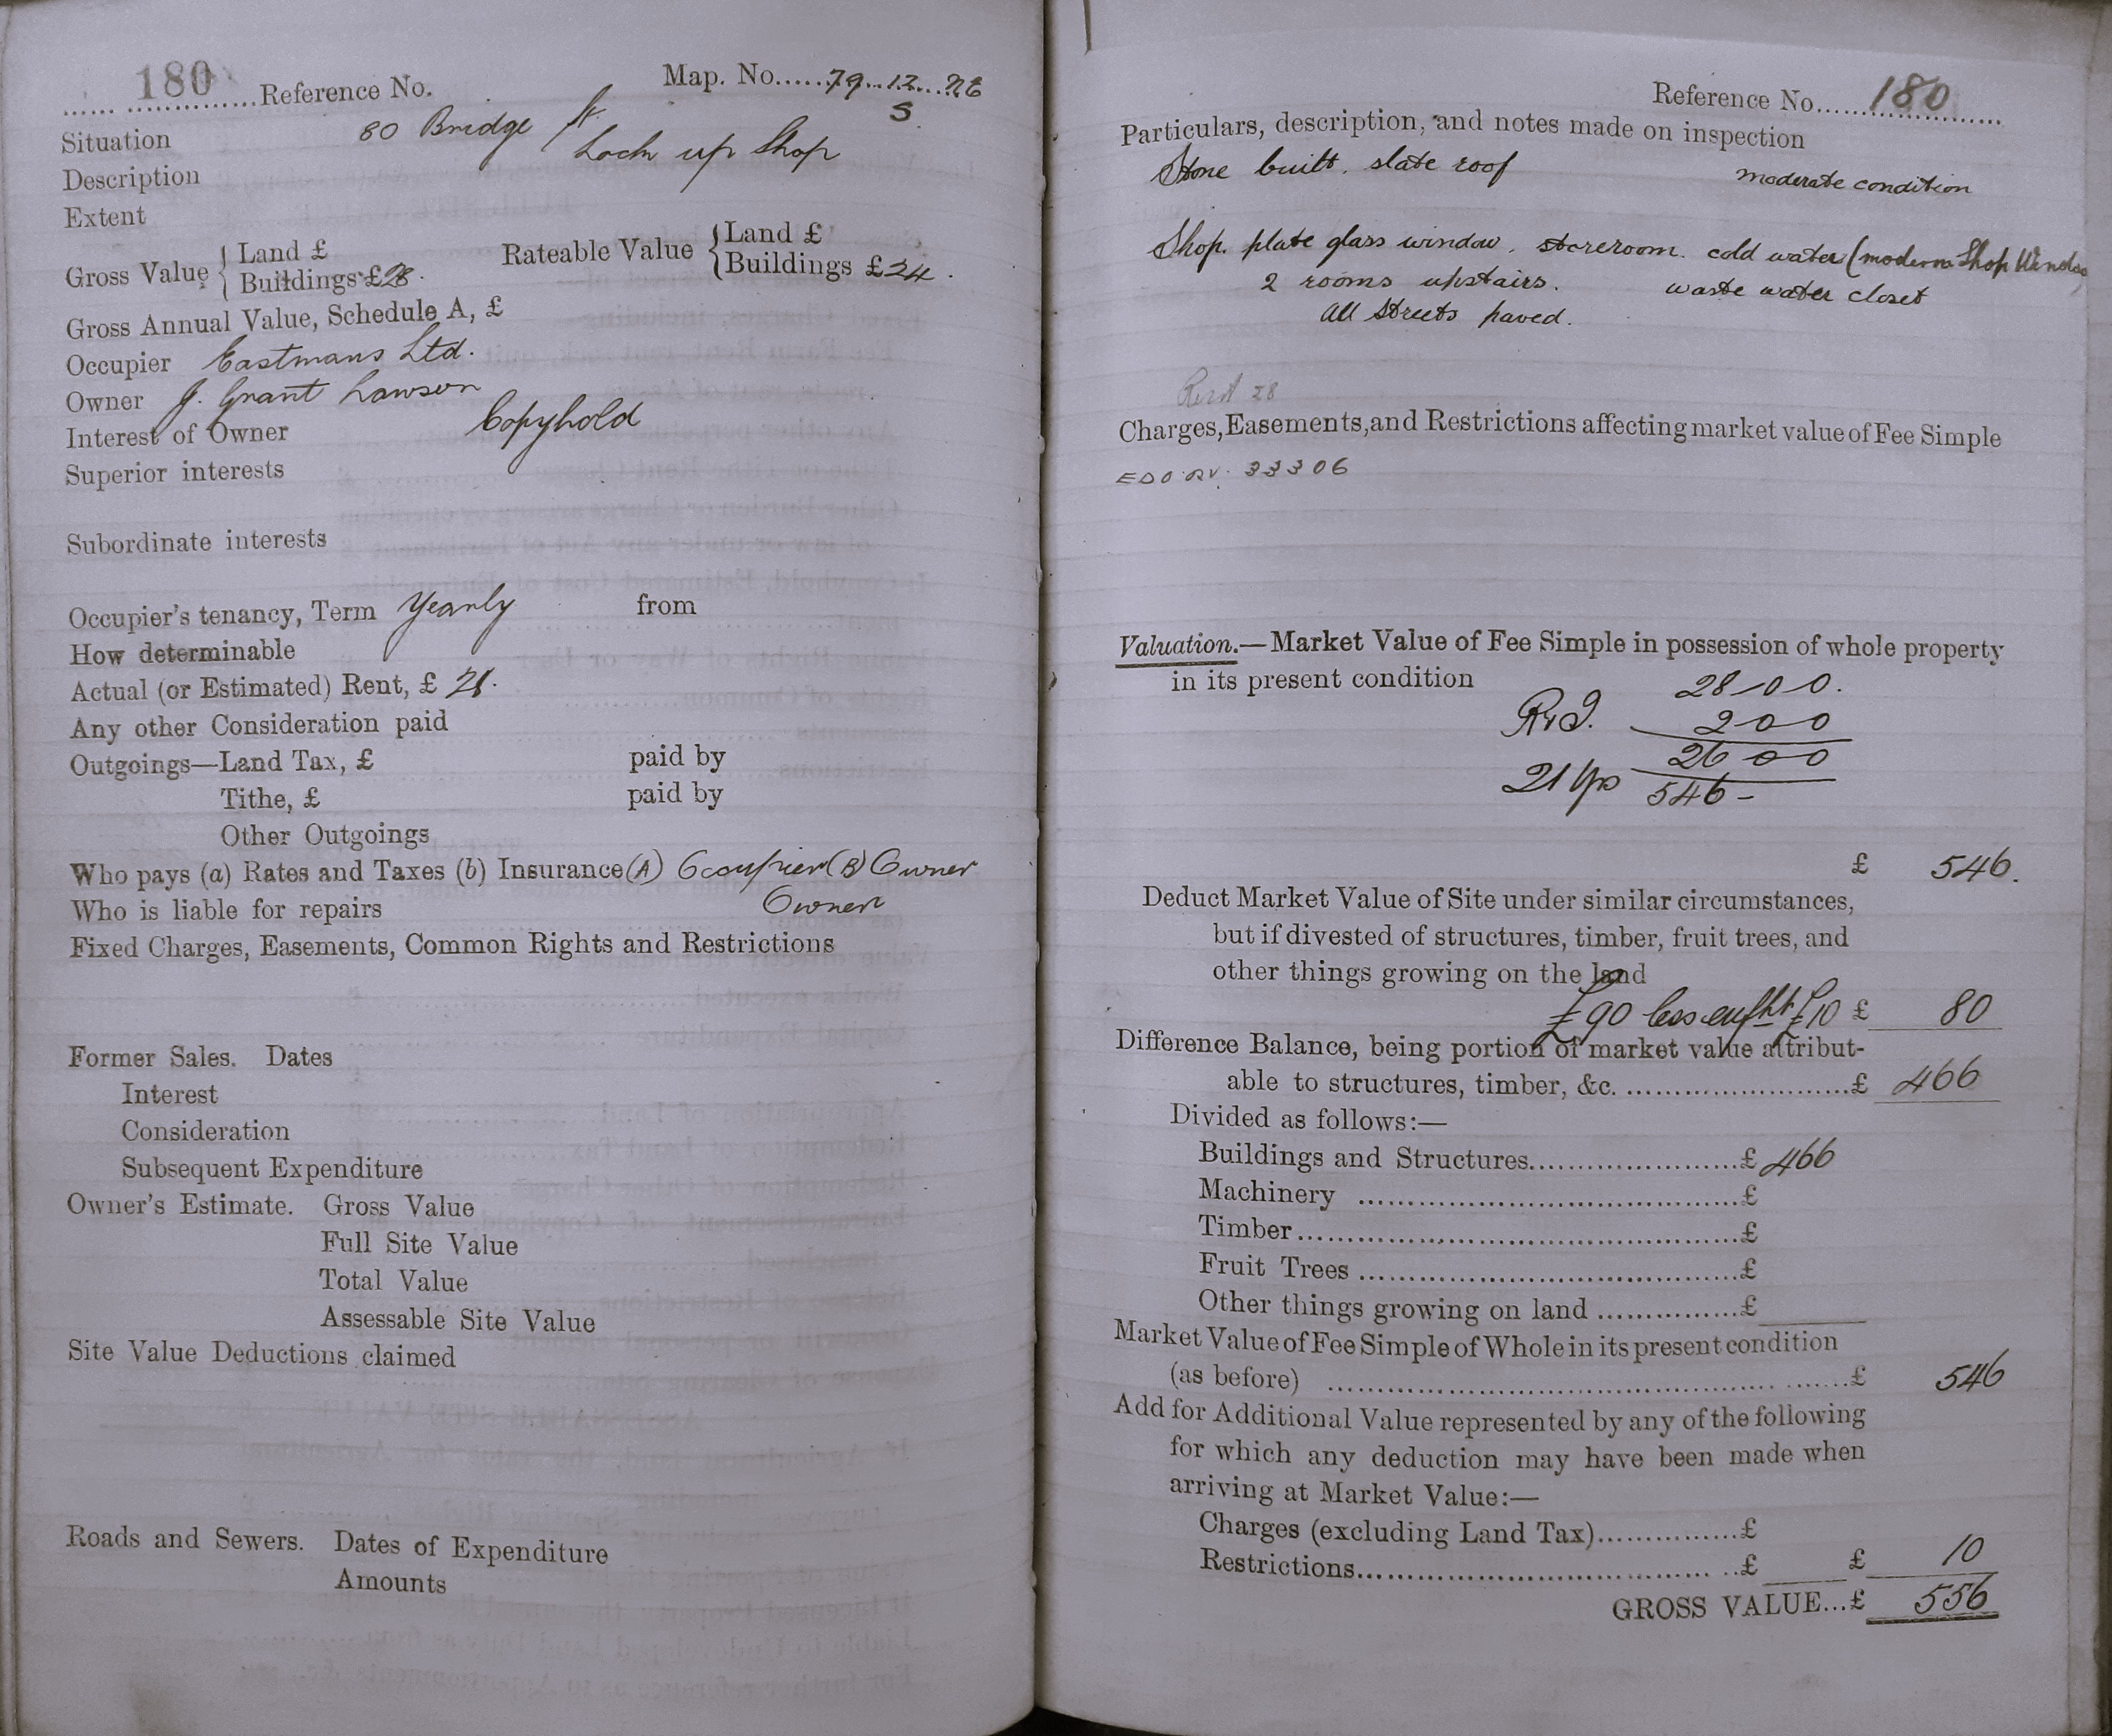 180 Reference No. Map. No. 79.12.NE
S
Situation 80 Bridge St.
Description Lock up Shop
Extent
Gross Value { Land £ Rateable Value { Land £
Buildings £28. Buildings £24.
Gross Annual Value, Schedule A, £
Occupier Eastmans Ltd.
Owner J. Grant Lawson
Interest of Owner Copyhold
Superior interests
Subordinate interests
Occupier's tenancy, Term Yearly from
How determinable
Actual (or Estimated) Rent, £
Any other Consideration paid
Outgoings—Land Tax, £ paid by
Tithe, £ paid by
Other Outgoings
Who pays (a) Rates and Taxes (b) Insurance (A) Occupier (B) Owner
Who is liable for repairs Owner
Fixed Charges, Easements, Common Rights and Restrictions
Former Sales. Dates
Interest
Consideration
Subsequent Expenditure
Owner's Estimate. Gross Value
Full Site Value
Total Value
Assessable Site Value
Site Value Deductions claimed
Roads and Sewers. Dates of Expenditure
Amounts
Reference No. 180
Particulars, description, and notes made on inspection
Stone built. slate roof moderate condition
Shop. plate glass window. storeroom. cold water (modern Shop Window)
2 rooms upstairs. waste water closet
All Streets paved.
Rent 28
Charges, Easements, and Restrictions affecting market value of Fee Simple
33306
Valuation.—Market Value of Fee Simple in possession of whole property
in its present condition
28-0-0.
R & I. 2 0 0
26 0 0
21 Yps 546-
£ 546.
Deduct Market Value of Site under similar circumstances,
but if divested of structures, timber, fruit trees, and
other things growing on the land
£90 less enfht £10 £ 80
Difference Balance, being portion of market value attribut-
able to structures, timber, &c. £ 466
Divided as follows:—
Buildings and Structures £ 466
Machinery £
Timber £
Fruit Trees £
Other things growing on land £
Market Value of Fee Simple of Whole in its present condition
(as before) £ 546
Add for Additional Value represented by any of the following
for which any deduction may have been made when
arriving at Market Value:—
Charges (excluding Land Tax) £
Restrictions £ £ 10
GROSS VALUE...£ 556